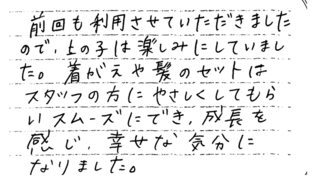 前回も利用させていただきました
ので、上の子は楽しみにしていまし
た。着がえや髪のセットは
スタッフの方にやさしくしてもら
いスムーズにでき、成長を
感じ、幸せな気分に
なりました。